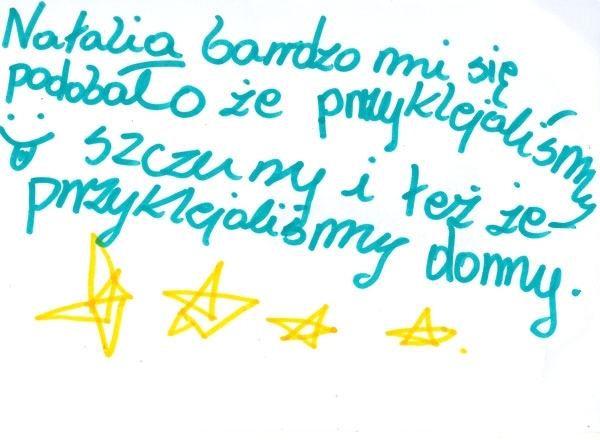 Natalia bardzo mi się
podobało że przyklejaliśmy
szczury i też że-
przyklejaliśmy domy.